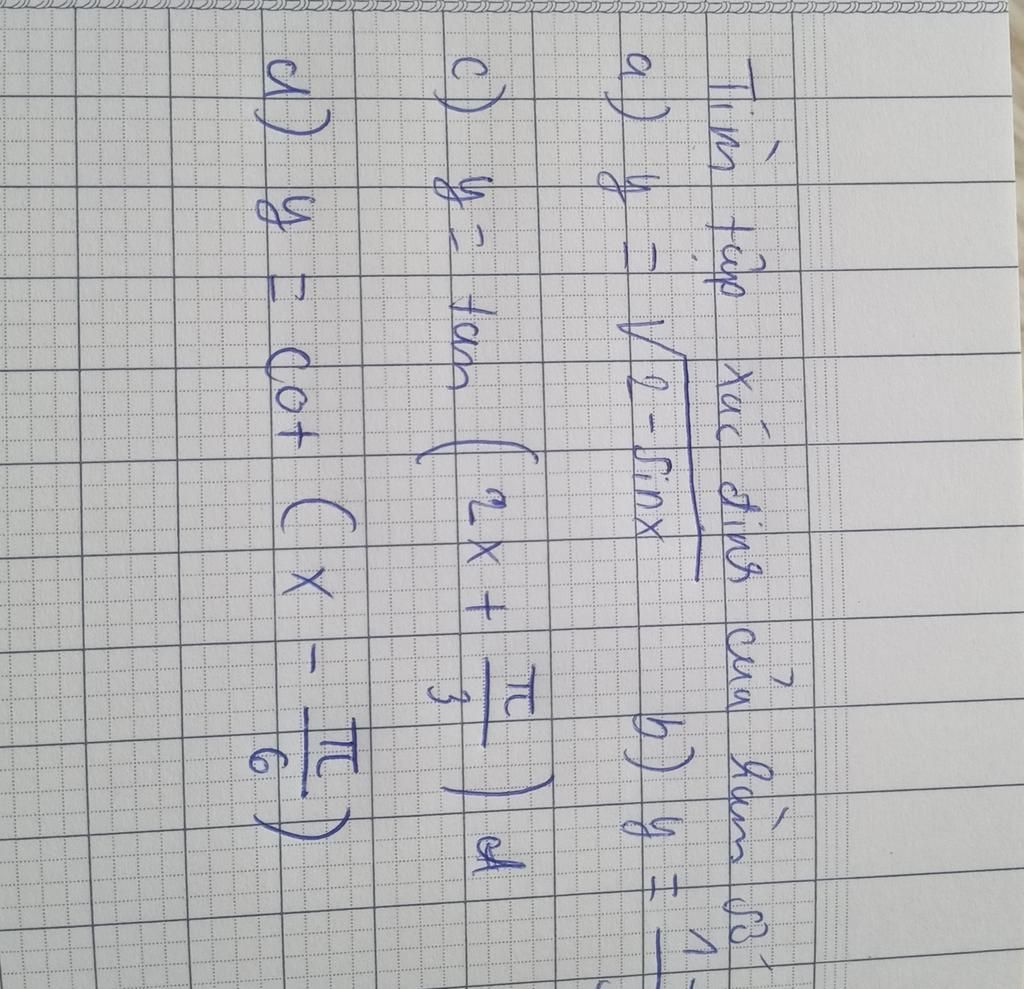 Tìm tập xác định của hàm số
a) y = √2 - sinx b) y = 1
c) y = tan ( 2x + π/3 )
d) y = cot ( x - π/6 )